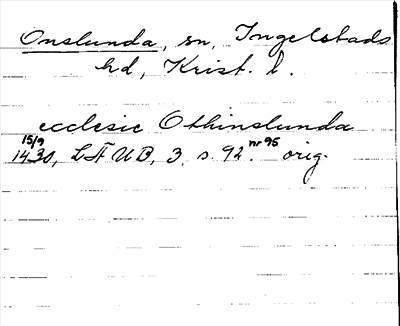 Onslunda, sn, Ingelstads
hd, Krist. l.
ecclesie Othinslunda
15/9
1430, LÄUB, 3, s. 92. nr 95 orig.